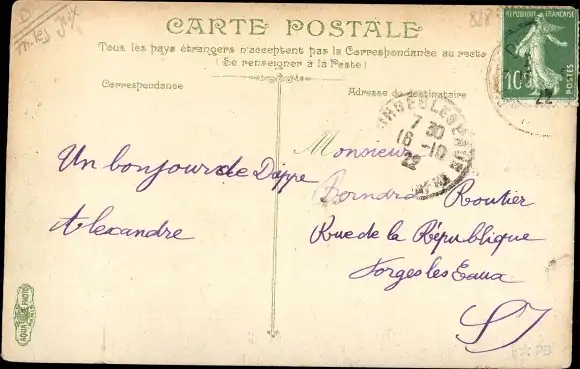 CARTE POSTALE
Tous les pays étrangers n'acceptent pas la Correspondance au recto
(Se renseigner à la Poste)
Correspondance
Adresse du destinataire
RÉPUBLIQUE FRANÇAISE
10
POSTES
7 30
16 -10
22
22
Un bonjour de Dieppe
Alexandre
Monsieur
Routier
Rue de la République
Forges les Eaux
SI
AQUA PHOTO
PARIS
PB